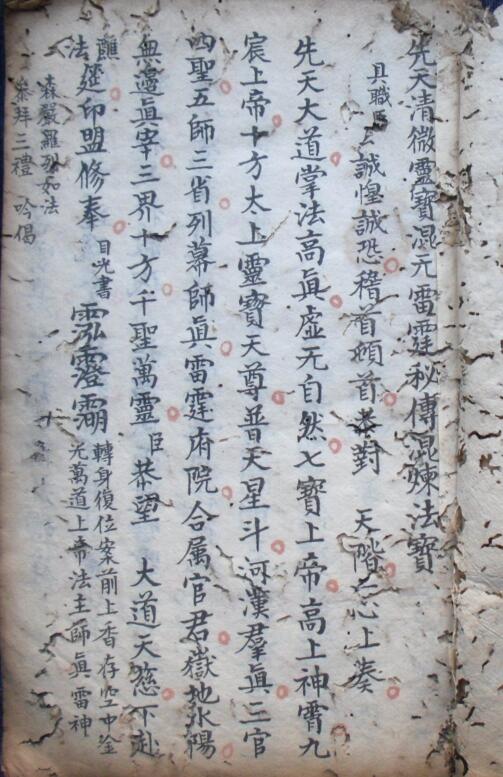 先天清微靈寶混元雷霆秘傳混煉法寶
具職臣厶誠惶誠恐稽首頓首恭對　天階一心上奏
先天大道掌法高眞虛无自然七寶上帝高上神霄九
宸上帝十方太上靈寶天尊普天星斗河漢羣眞三官
四聖五師三省列幕師眞雷霆府院合属官君嶽地水陽
無邊眞宰三界十方千聖萬靈臣恭望　大道天慈下赴
醮
法筵印盟修奉
目光書
轉身復位案前上香存空中金
光萬道上帝法主師眞雷神
森嚴羅列如法
恭拜三禮　吟偈